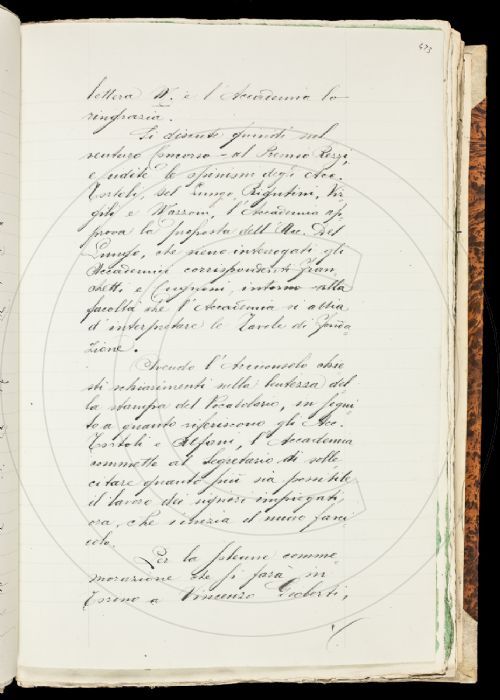 473
lettera W. e l'Accademia lo
ringrazia.
Si discute quindi sul
venturo Concorso al Premio Rezzi,
e udite le opinioni degli Acc.
Tortoli, Del Lungo, Rigutini, Vir-
gili e Mazzoni, l'Accademia ap-
prova la proposta dell'Acc. Del
Lungo, che sieno interrogati gli
Accademici corrispondenti Fran-
chetti e Cugnoni, intorno alla
facoltà che l'Accademia si abbia
d'interpretare le Tavole di fonda-
zione.
Avendo l'Arciconsolo chie
sti schiarimenti sulla lentezza del
la stampa del Vocabolario, in segui-
to a quanto riferiscono gli Acc.
Tortoli e Alfani, l'Accademia
commette al Segretario di solle
citare quanto più sia possibile
il lavoro dei signori impiegati,
ora, che s'inizia il nuovo fasci
colo.
Per la solenne comme-
morazione che si farà in
Torino a Vincenzo Gioberti,